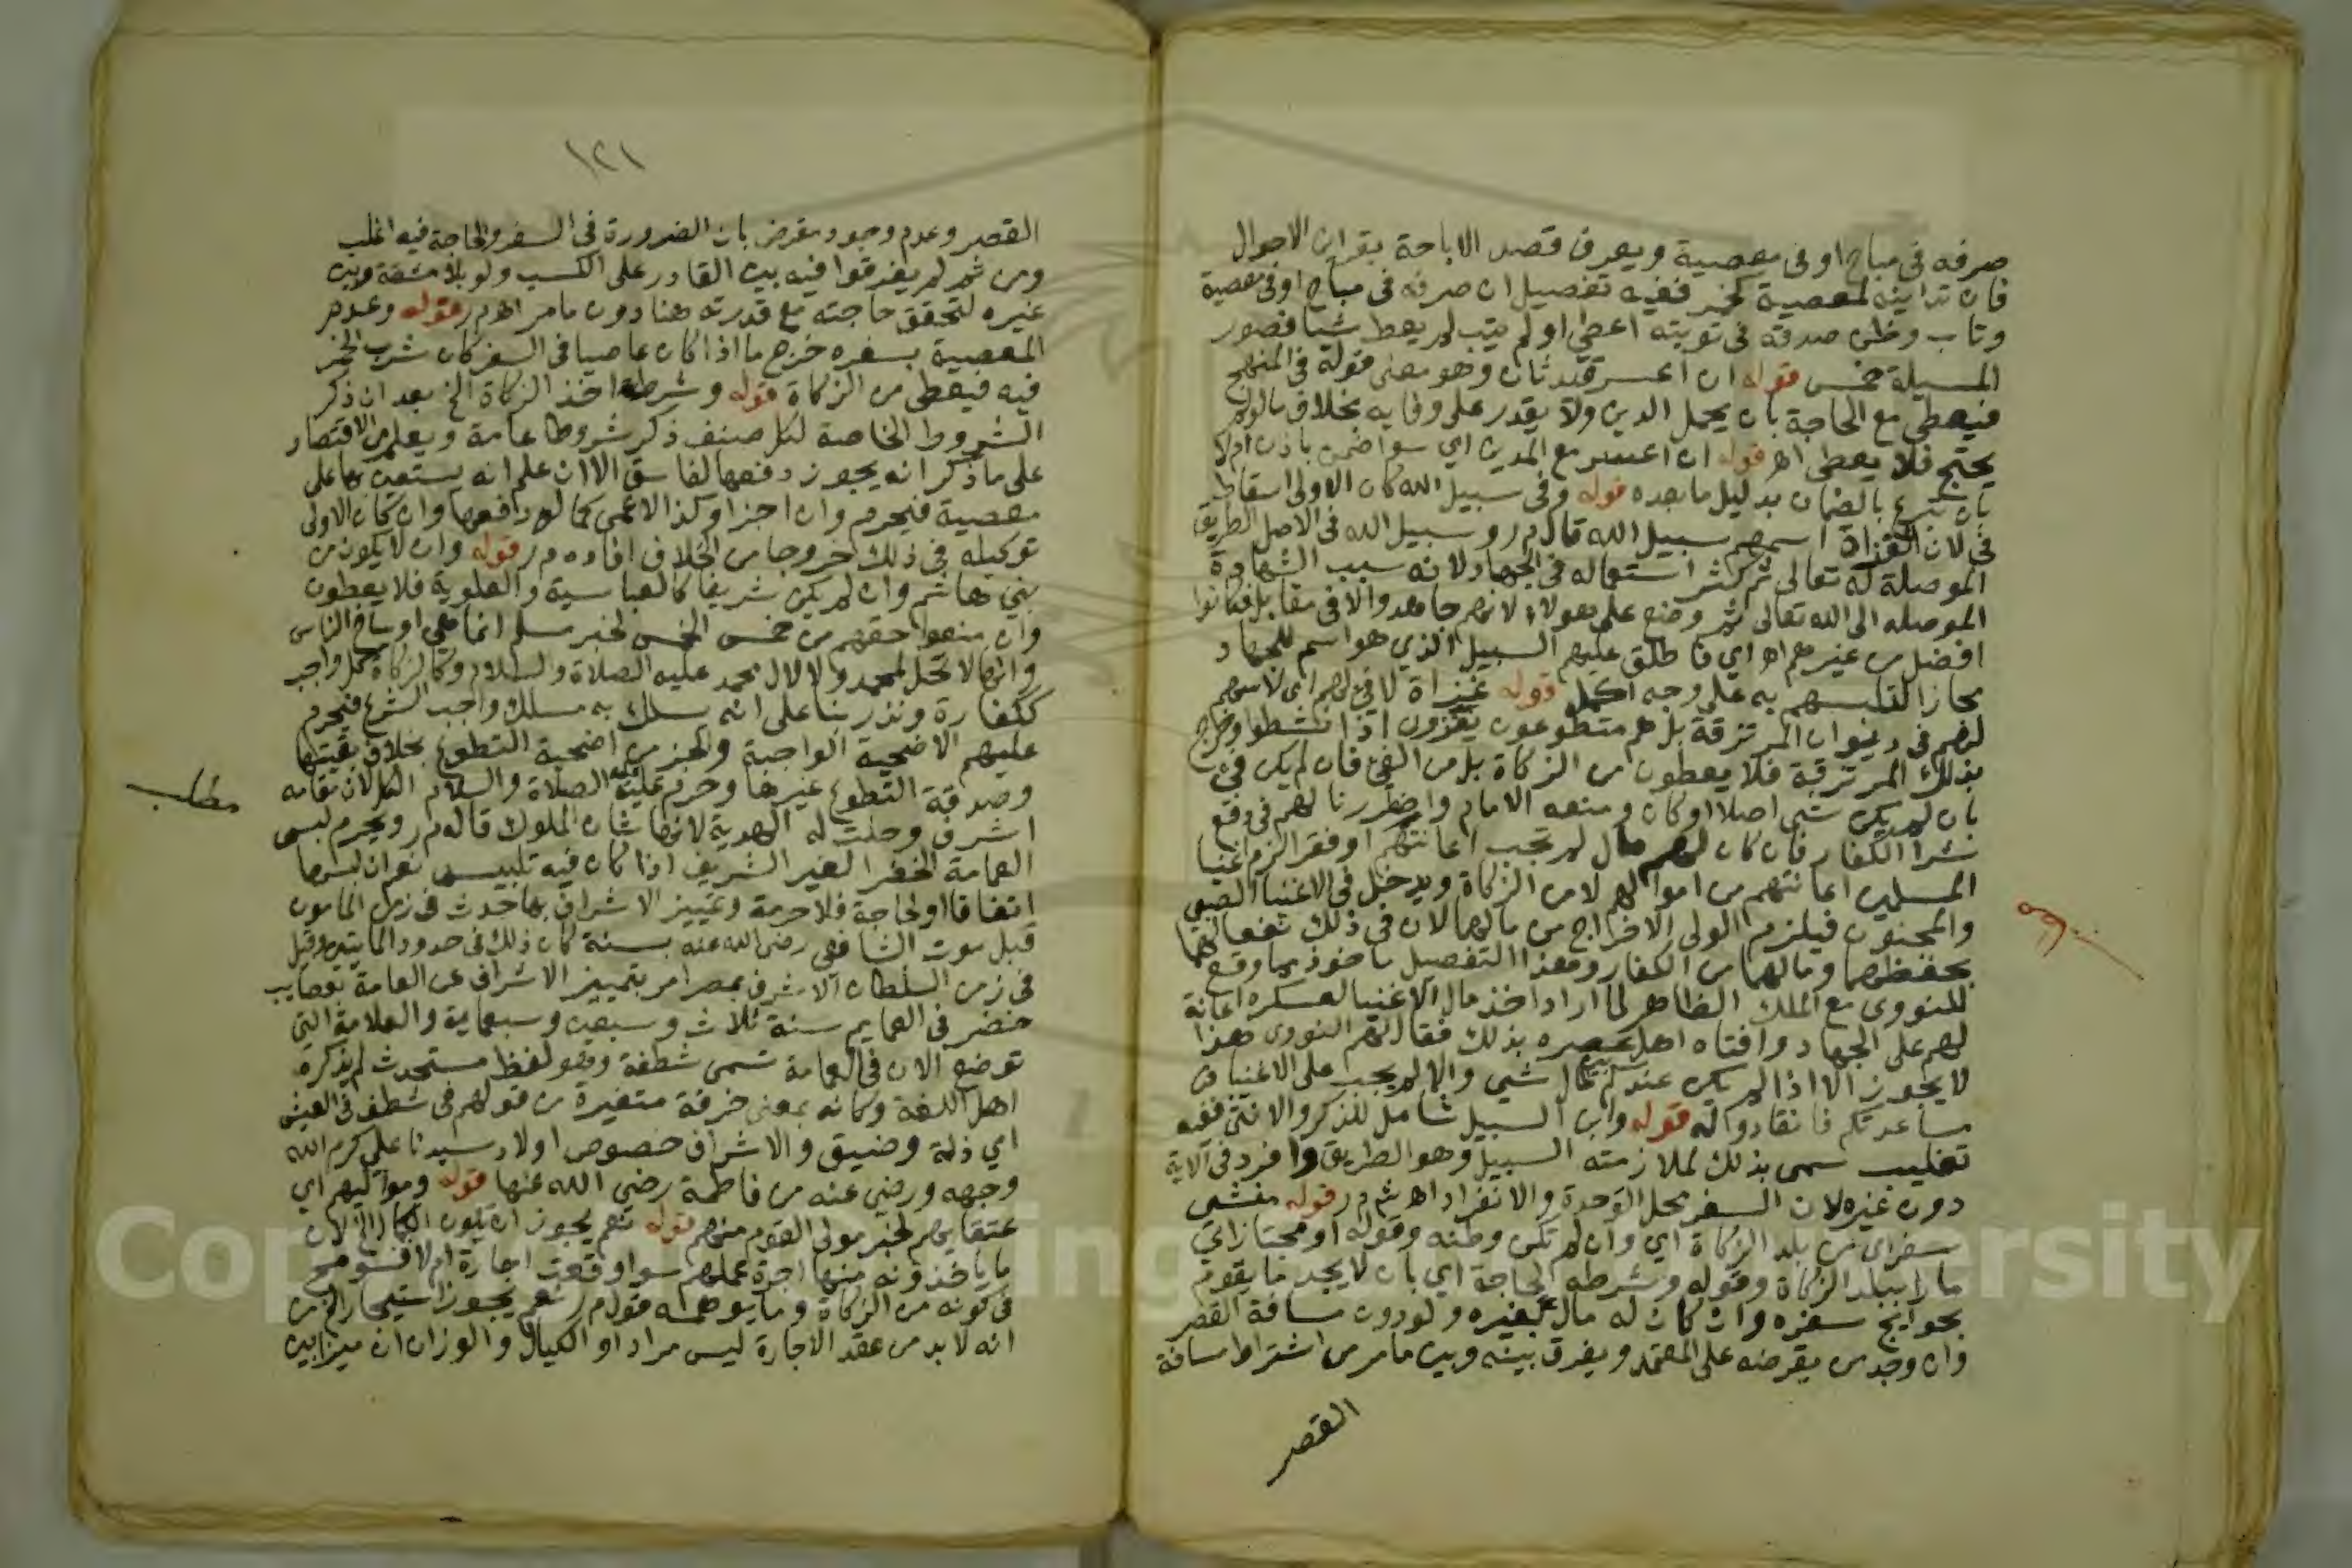 صرفه في مباح او في معصية ويعرف قصد الاباحة بقراين الاحوال
فان تداينه لمعصية كخمر ففيه تفصيل ان صرفه في مباح او في معصية
وتاب وظن صدقه في توبته اعطي او لم يتب لم يعط شيا فصور
المسيلة خمس قوله ان اعسر قيد ثان وهو معنى قوله في المنهج
فيعطى مع الحاجة بان يحل الدين ولا يقدر على وفايه بخلاف ما لو لم
يحتج فلا يعطى اهـ قوله ان اعسر مع المدين اي سوا ضمن باذن ام لا
بان تبرع بالضمان بدليل ما بعده قوله وفي سبيل الله كان الاولى اسقاط
في لان الغزاة اسمهم سبيل الله قال م ر وسبيل الله في الاصل الطريق
الموصلة له تعالى ثم كثر استعماله في الجهاد لانه سبب الشهادة
الموصله الى الله تعالى ثم وضع على هولاء لانهم جاهدوا لا في مقابل فكانوا
افضل من غيرهم اهـ اي فاطلق عليهم السبيل الذي هو اسم للجهاد
مجازا لتلبسهم به على وجه اكمل قوله غزاة لا فئ لهم اي لا سهم
لهم في ديوان المرتزقة بل هم متطوعون يغزون اذا نشطوا وخرج
بذلك المرتزقة فلا يعطون من الزكاة بل من الفئ فان لم يكن فئ
بان لم يكن شي اصلا او كان ومنعه الامام واضطررنا لهم في دفع
شر الكفار فان كان لهم مال لم تجب اعانتهم او فقرا لزم اغنيا
المسلمين اعانتهم من اموالهم لا من الزكاة ويدخل في الاغنيا الصبي
والمجنون فيلزم الولي الاخراج من مالهما لان في ذلك نفعا لهما
بحفظهما ومالهما من الكفار وهذا التفصيل ماخوذ مما وقع
للنووي مع الملك الظاهر لما اراد اخذ مال الاغنيا لعسكره اعانة
لهم على الجهاد وافتاه اهل عصره بذلك فقال لهم النووي هذا
لا يجوز الا اذا لم يكن عندكم بيت مال شي والا لم يجب على الاغنيا
مساعدتكم فانقادوا له قوله وابن السبيل شامل للذكر والانثى ففيه
تغليب سمي بذلك لملازمته السبيل وهو الطريق وافرد في الآية
دون غيره لان السفر محل الوحدة والانفراد اهـ ش م ر قوله منشي
سفر اي من بلد الزكاة اي وان لم تكن وطنه وقوله او مجتاز اي
مارا ببلد الزكاة وقوله وشرطه الحاجة اي بان لا يجد ما يقوم
بحوايج سفره وان كان له مال بغيره ولو دون مسافة القصر
وان وجد من يقرضه على المعتمد ويفرق بينه وبين ما مر من اشتراط مسافة
القصر
١٢١
القصر وعدم وجود مقرض بان الضرورة في السفر والحاجة فيه اغلب
ومن ثم لم يفرقوا فيه بين القادر على الكسب ولو بلا مشقة وبين
غيره لتحقق حاجته مع قدرته هنا دون ما مر اهـ م ر قوله وعدم
المعصية بسفره خرج ما اذا كان عاصيا في السفر كان شرب الخمر
فيه فيعطى من الزكاة قوله وشرط اخذ الزكاة الخ بعد ان ذكر
الشروط الخاصة لكل صنف ذكر شروطا عامة ويعلم من الاقتصار
على ما ذكر انه يجوز دفعها لفاسق الا ان علم انه يستعين بها على
معصية فيحرم وان اجزا وكذا الاعمى كما له دافعها وان كان الاولى
توكيله في ذلك خروجا من الخلاف افاده م ر قوله وان لا يكون من
بني هاشم وان لم يكن شريفا كالعباسية والعلوية فلا يعطون
وان منعوا حقهم من خمس الخمس لخبر مسلم انما هي اوساخ الناس
وانها لا تحل لمحمد ولا لال محمد عليه الصلاة والسلام وكالزكاة كل واجب
ككفارة ونذر بنا على انه سلك به مسلك واجب الشرع فيحرم
عليهم الاضحية الواجبة والجز من اضحية التطوع بخلاف بقيتها
وصدقة التطوع غيرها وحرم عليه الصلاة والسلام الكل لان مقامه
مطلب
اشرف وحلت له الهدية لانها شان الملوك قاله م ر ويحرم لبس
العمامة الخضرا لغير الشريف اذا كان فيه تلبيس نعم ان لبسها
اتفاقا او لحاجة فلا حرمة وتمييز الاشراف بها حدث في زمن المامون
قبل موت الشافعي رضي الله عنه بسنة كان ذلك في حدود المايتين وقيل
في زمن السلطان الاشرف بمصر امر بتمييز الاشراف عن العامة بعصايب
خضر في العمايم سنة ثلاث وسبعين وسبعماية والعلامة التي
توضع الان في العمامة تسمى شطفة وهو لفظ مستحدث لم يذكره
اهل اللغة وكانه بمعنى خرقة متغيرة من قولهم في شطف في العيش
اي ذلة وضيق والاشراف خصوص اولاد سيدنا علي كرم الله
وجهه ورضي عنه من فاطمة رضي الله عنها قوله ومواليهم اي
عتقايهم لخبر مولى القوم منهم قوله نعم يجوز ان يكون الكيال الخ لان
ما ياخذونه منها اجرة عملهم سوا وقعت اجارة ام لا
في كونه من الزكاة وما يوهمه قول م ر نعم يجوز استيجار الخ من
انه لا بد من عقد الاجارة ليس مراد او الكيال والوزان ان ميزا بين